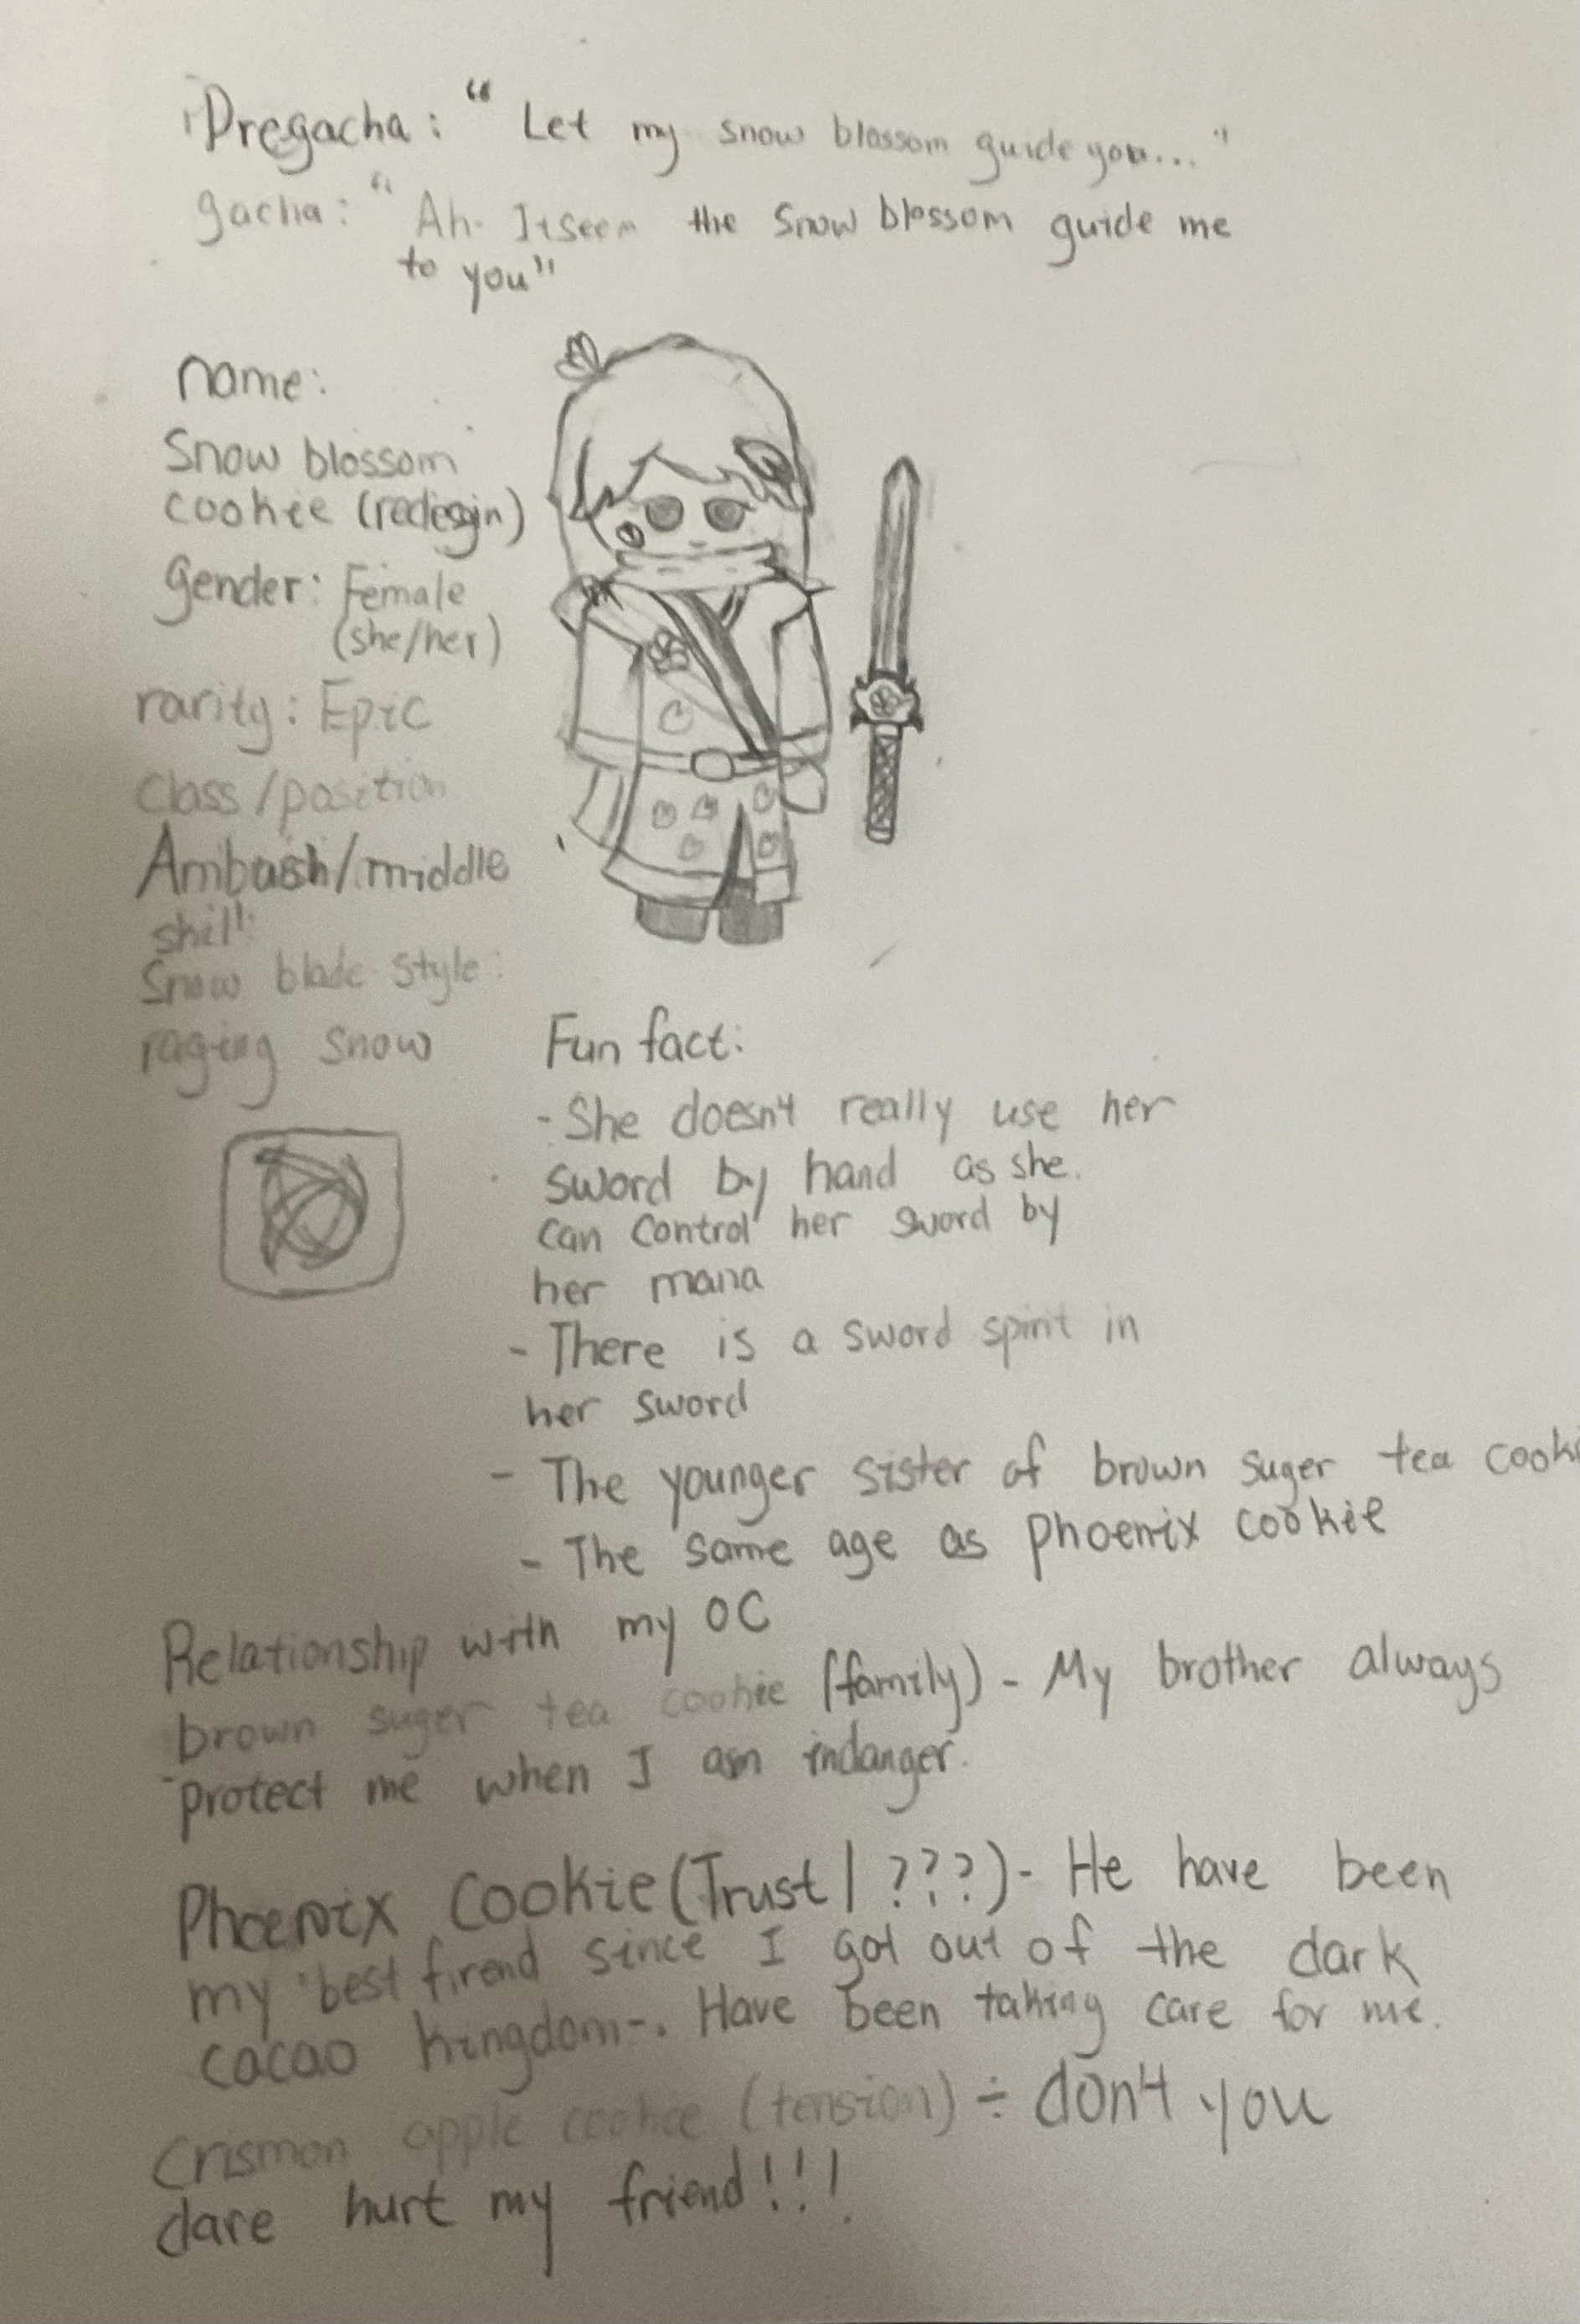 Pregacha: “ Let my snow blossom guide you... "
gacha: “ Ah. It seem the Snow blossom guide me
to you"
name:
Snow blossom
cookie (redesign)
Gender: Female
(she/her)
rarity: Epic
Class/position
Ambush/middle
skill:
Snow blade style:
raging snow
Fun fact:
- She doesn't really use her
sword by hand as she.
can control her sword by
her mana
- There is a sword spirit in
her sword
- The younger sister of brown suger tea cooki
- The same age as phoenix cookie
Relationship with my OC
brown suger tea cookie (family) - My brother always
protect me when I am indanger.
Phoenix Cookie (Trust | ???) - He have been
my best firend since I got out of the dark
cacao kingdom-. Have been taking care for me.
Crismon apple cookie (tension) ÷ don't you
dare hurt my friend!!!